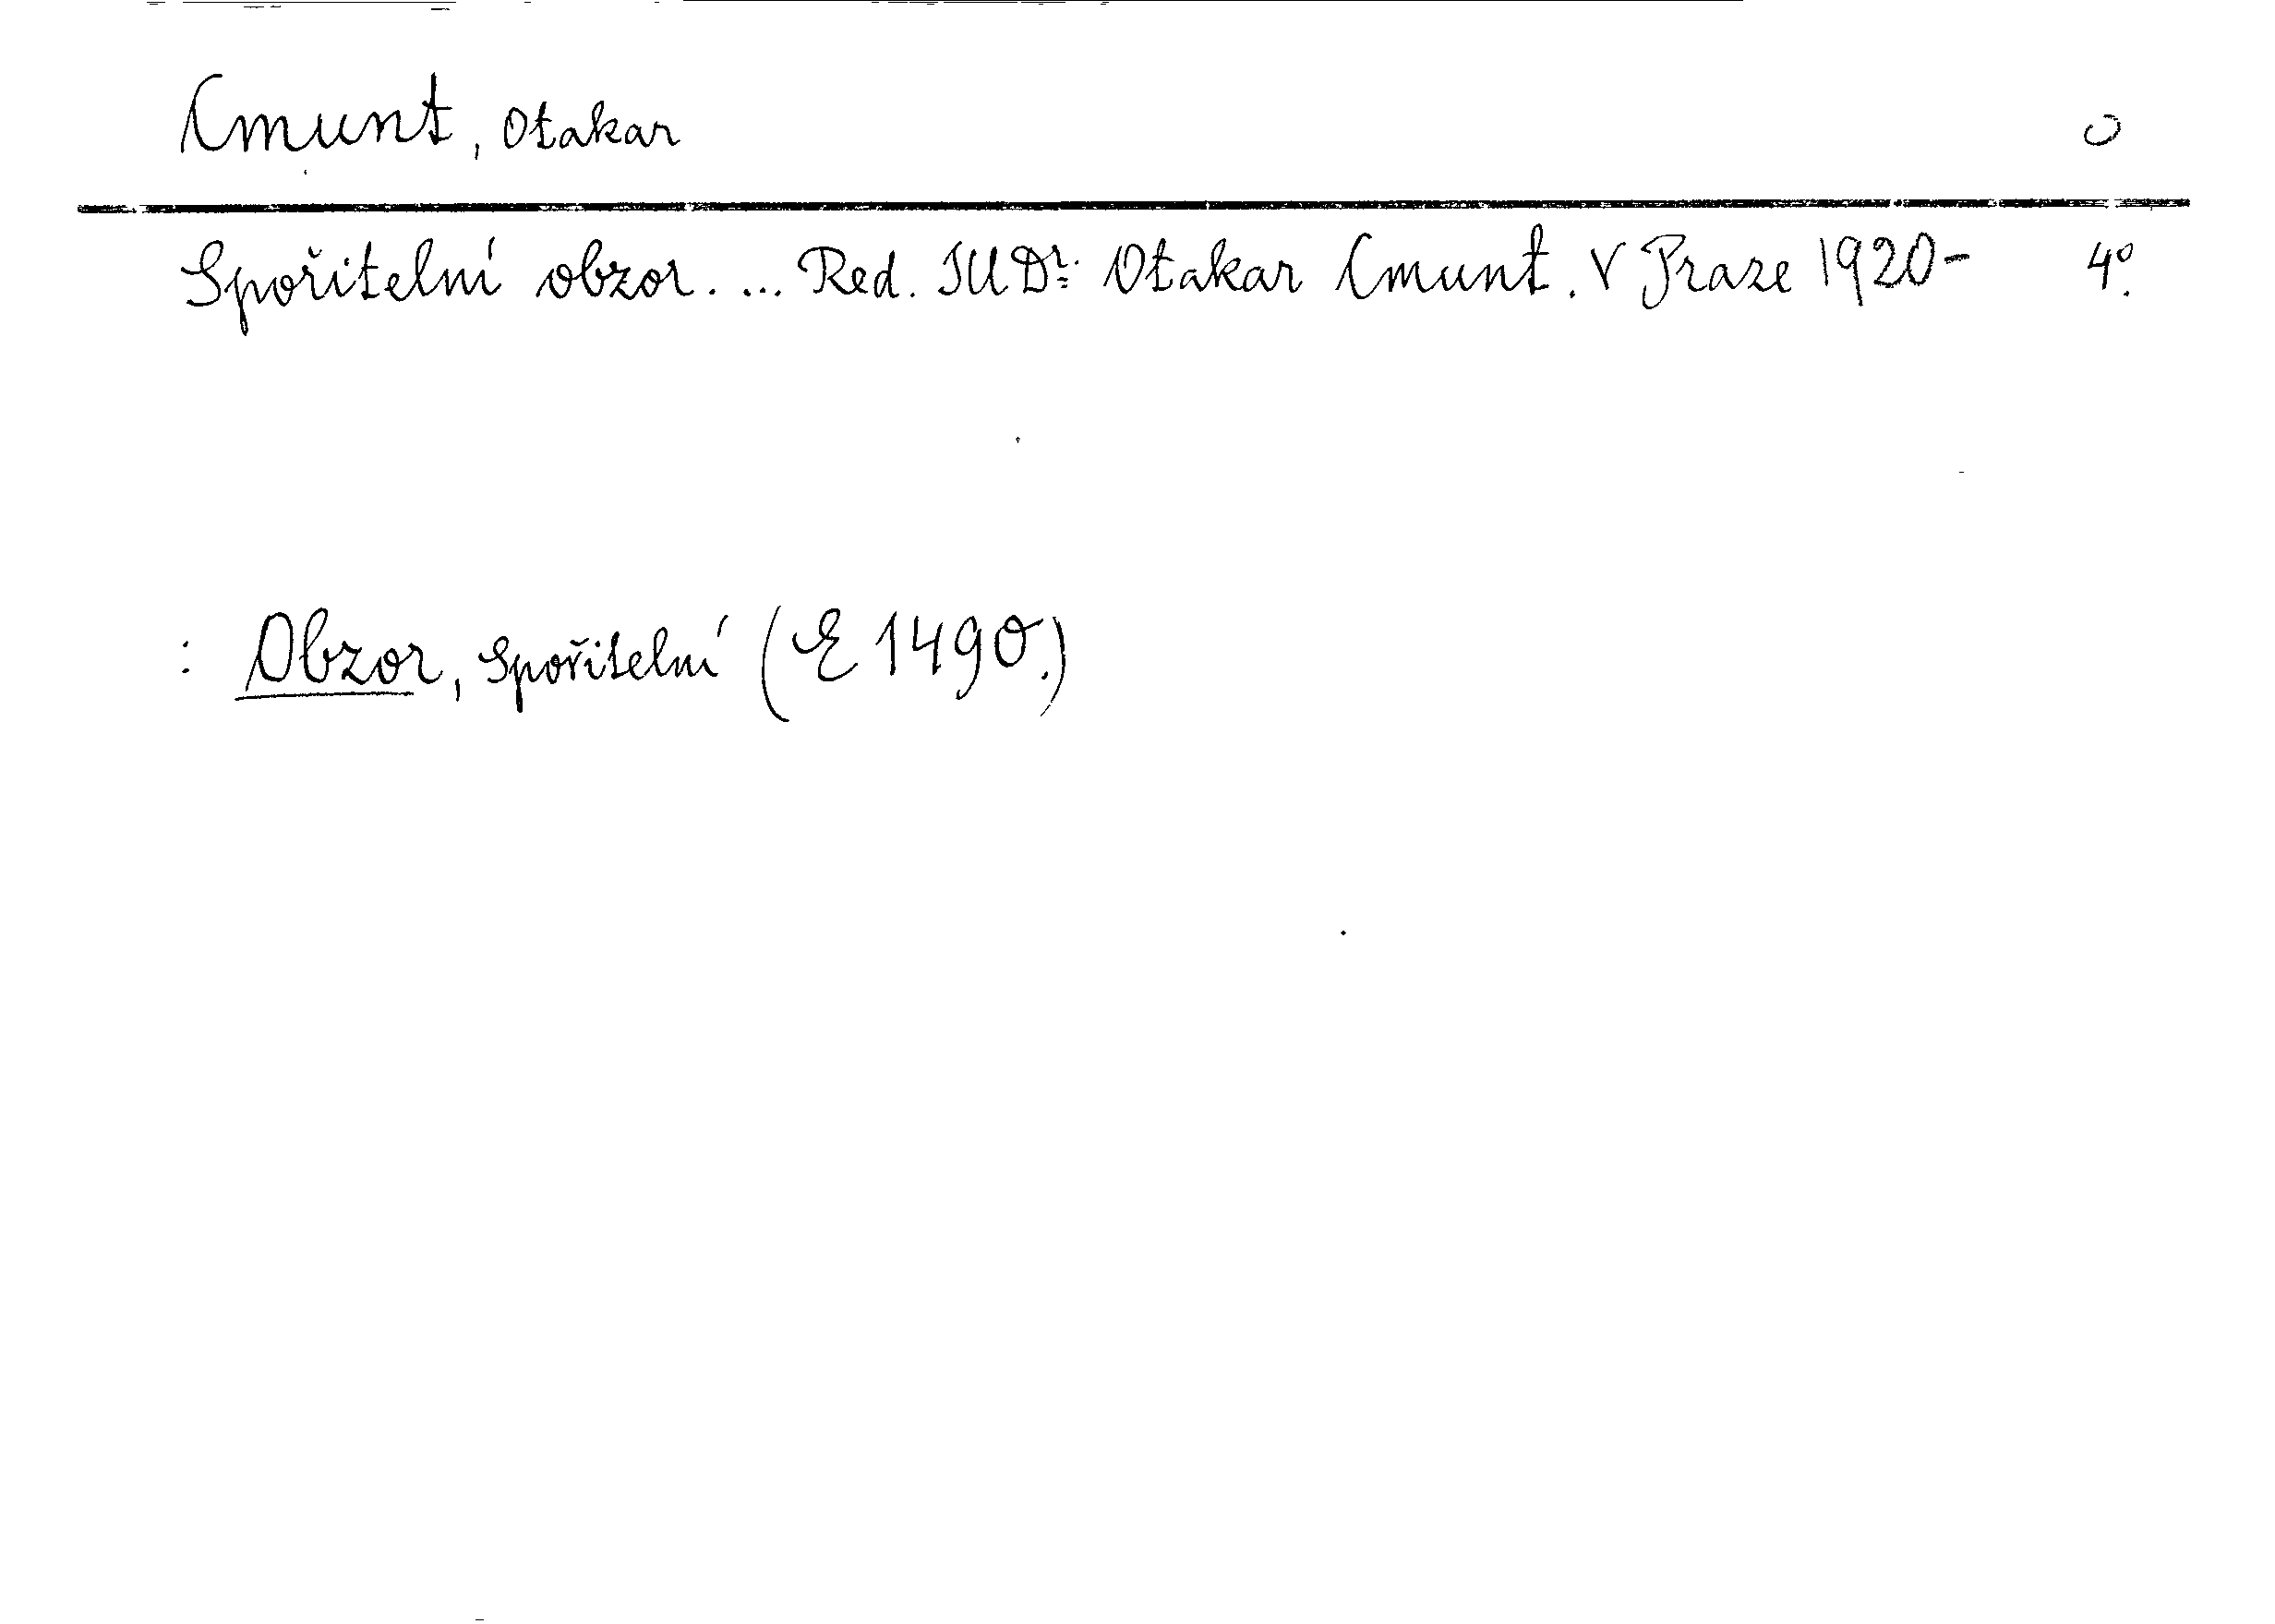 Cmunt, Otakar
Spořitelní obzor. ... Red. JUDr. Otakar Cmunt. V Praze 1920- 4°.
: Obzor, spořitelní (E 1490.)